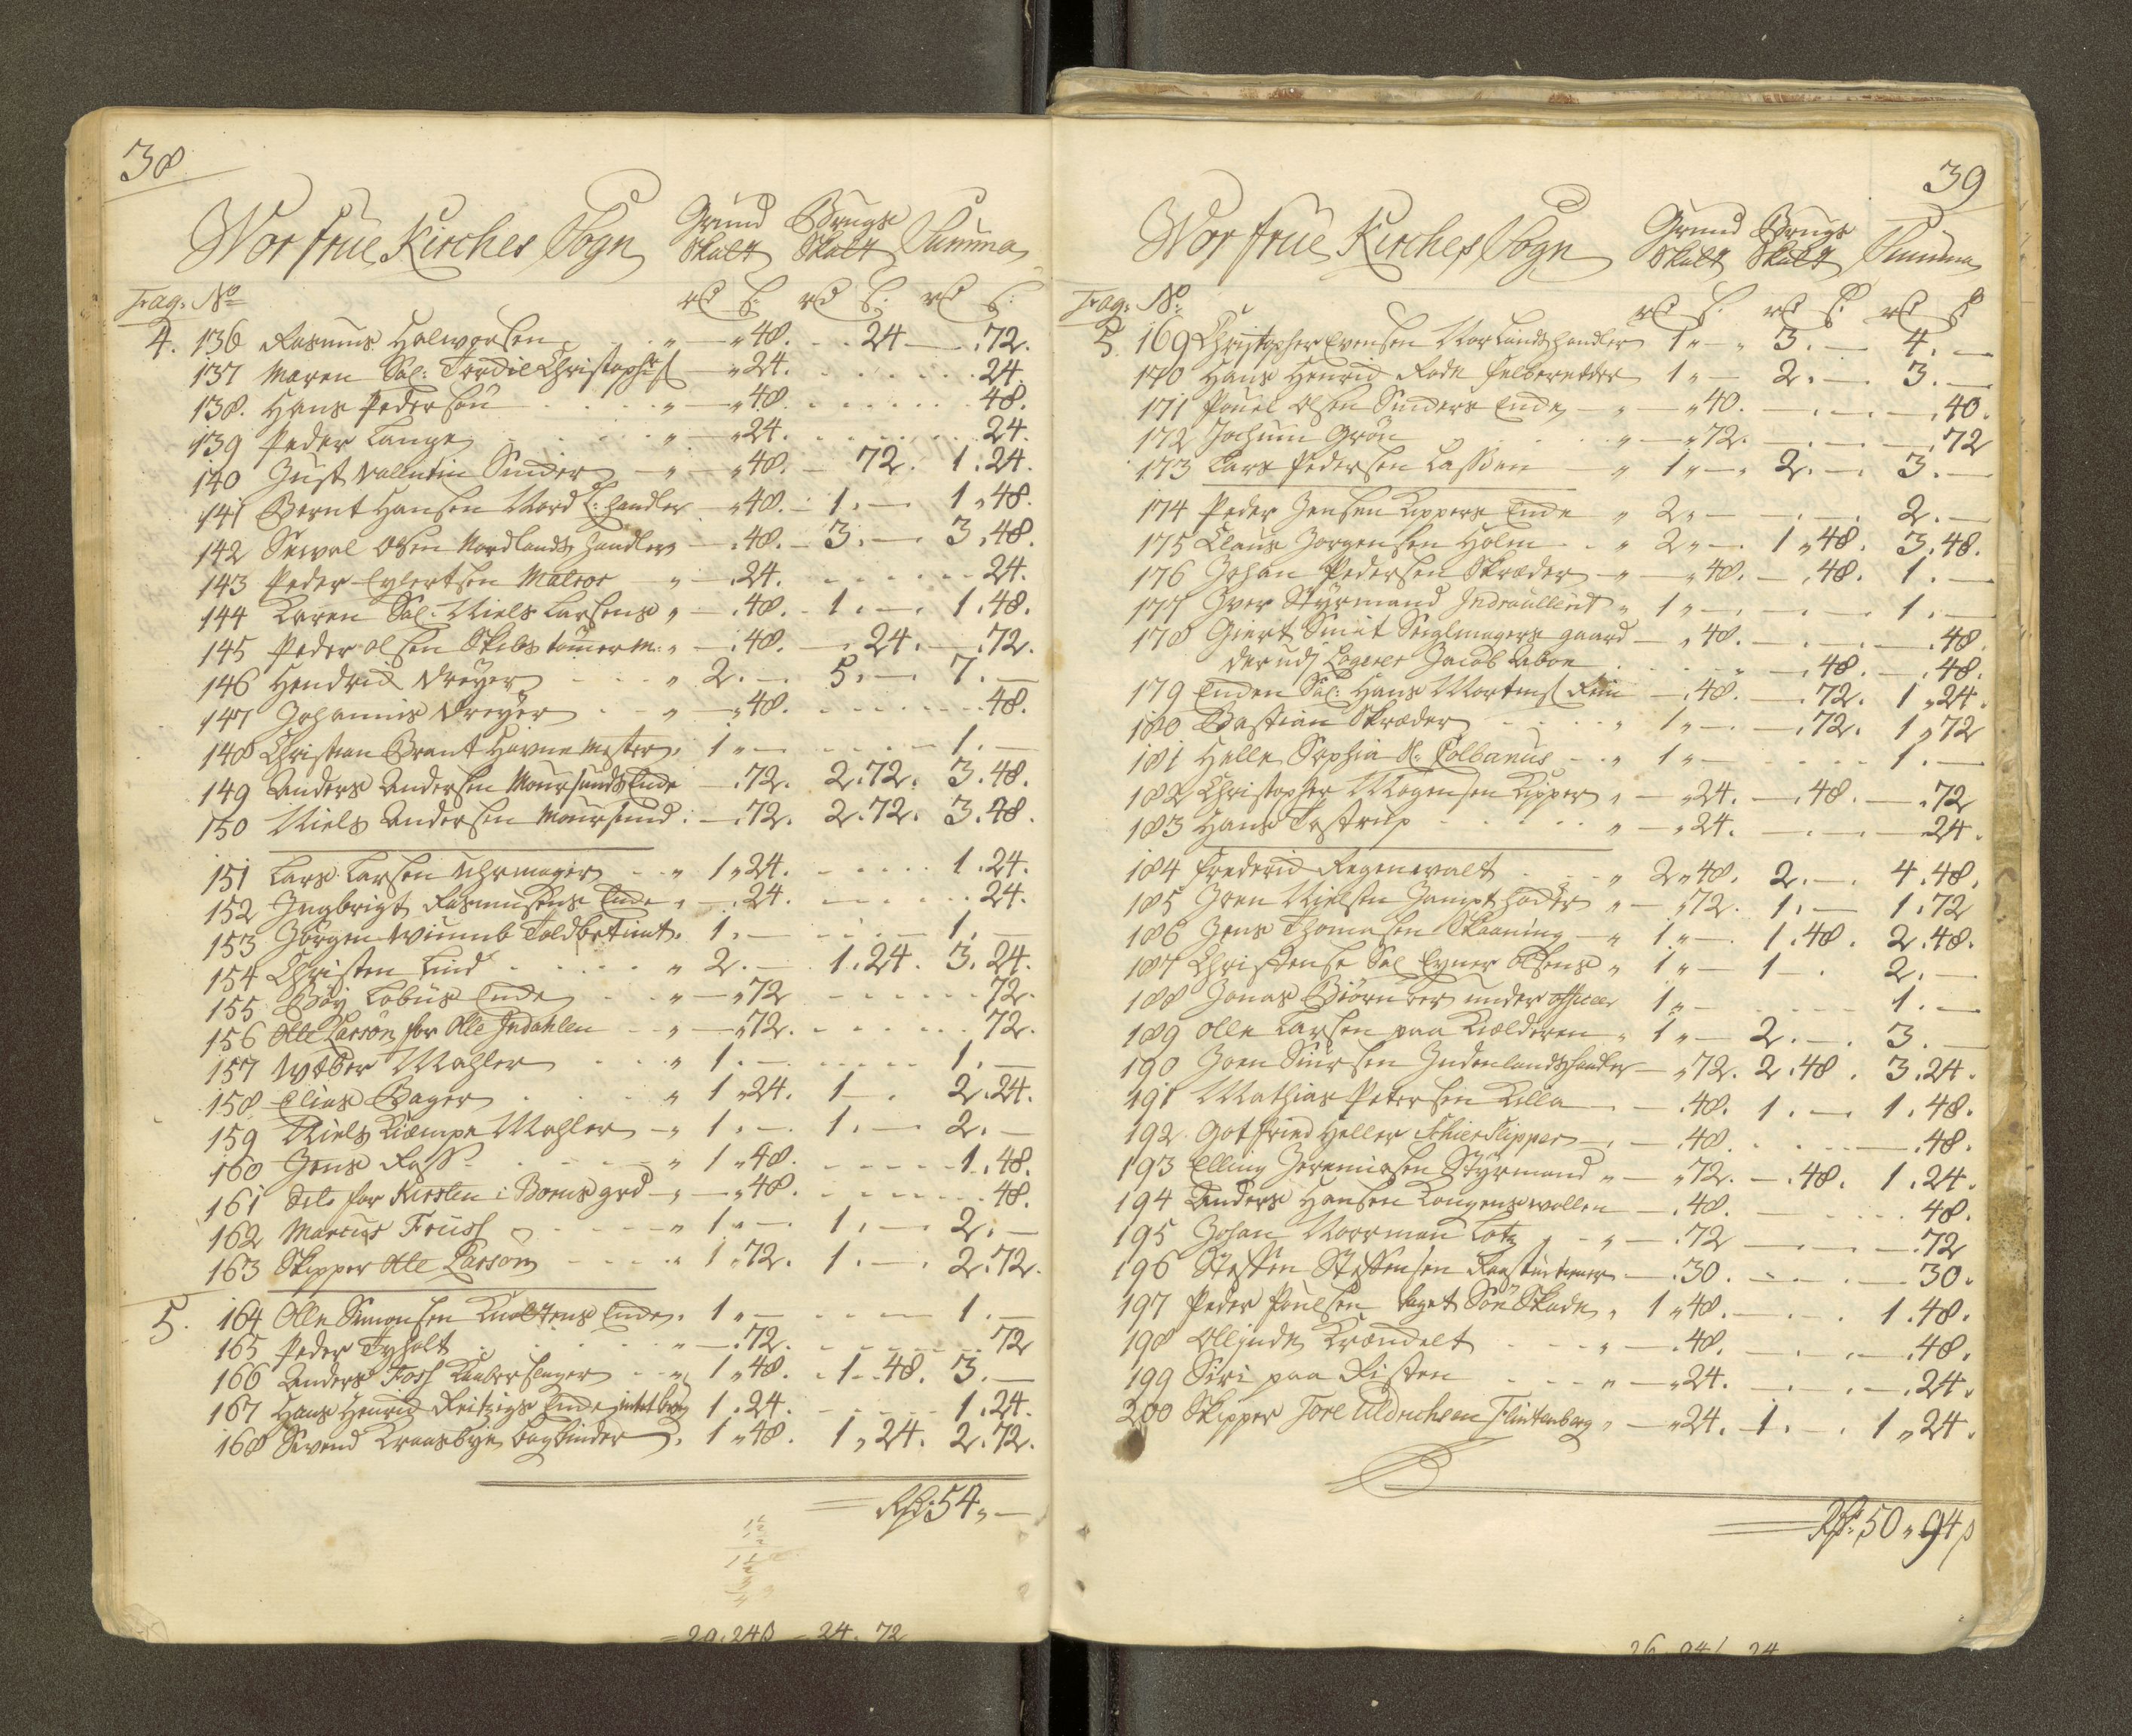 38
Wor frue Kirches Sogn Grund Skatt Brugs Skatt Summa
Frag: No rd s: rd s: rd s:
4. 136 Rasmus Halworsen " — " 48. — 24 — .72.
137 Maren Sal: Tordis Christophers — " 24. . . . . 24.
138. Hans Pedersen . . . . " — " 48. . . . . 48.
139 Peder Lange . . . . " — " 24. . . . . 24.
140 Just Vallentin Sinder — " — " 48. — 72. 1. 24.
141 Bernt Hansen Nord L: handler — " 48. — 1. — 1 " 48.
142 Siwal Olsen Nordlands handler — . 48. — 3. — 3. 48.
143 Peder Eylertsen Matros " — . 24. . . . . 24.
144 Karen Sal: Niels Larsens " — . 48. — 1. — 1. 48.
145 Peder Olsen Skibstømerm: " — . 48. — . 24. — . 72.
146 Hendrich Dreyer . . . " 2. — 5. — 7. —
147 Johannis Dreyer . . " — " 48. . . . . 48.
148 Christian Brant Havne Mester. 1 " — . . . . 1. —
149 Anders Andersen Moursunds Enke — . 72. 2. 72. 3. 48.
150 Niels Andersen Moursund. — . 72. 2. 72. 3. 48.
151 Lars Larsen Uhrmager . . " 1 " 24. . . . . 1. 24.
152 Ingbrigt Rasmusens Enke " — . 24. . . . . 24.
153 Jørgen Winneb Toldbetient. 1. — . . . — 1. —
154 Christen Lind . . . . " 2. — 1. 24. 3. 24.
155 Boy Lobus Enke . . . " — " 72 . . . . 72.
156 Olle Larsøn for Olle Indahlen . . " — " 72. . . . . 72.
157 Wæber Mahler . . . " 1. — . . . . 1. —
158 Elias Bager . . . . " 1 " 24. 1 — . 2. 24.
159 Niels Kiempe Mahler — " 1. — . 1. — 2. —
160 Jens Rass . . . . " 1 " 48. . . . . 1. 48.
161 Dito for Kirsten i Boens grd — " — " 48. . . . . 48.
162 Marcus Friis . . . . " 1 " — . 1. — 2. —
163 Skipper Olle Larsøn . . . . " 1. 72. 1. — . 2. 72.
5. 164 Olle Simonsen Enke. 1 " — . . . — 1. —
165 Peder Tyholt . . . . " — . 72. . . . . 72
166 Anders Foss Kaaberslager . . " 1 " 48. . 1 . . 48. 3. —
167 Hans Henrich Reitzigs Enke intet brug 1. 24. . . . . 1. 24.
168 Sivend Kraasbye bogbinder. 1 " 48. 1 " 24. 2. 72.
Rd: 54 " —
29. 24s — 24. 72
39
Wor frue Kirches Sogn Grund Skatt Brugs Skatt Summa
Frag: No: rd s. rd s. rd s
5. 169 Christopher Evensen Norlandshandler 1 " — " 3. — 4. —
170 Hans Henrich Rode Felbereder 1 " — 2. — . 3. —
171 Pouel Olsen Sinders Enke — " — " 40. — . — . — . 40.
172 Jochum Grøn . . . . " — " 72. — . — . — . 72
173 Lars Pedersen Lassen — " 1 " — " 2. — . 3. —
174 Peder Jensen Kippers Enke " 2 " — — . — . 2. —
175 Claus Jørgensen Holm . . " 2 " — . 1 " 48. 3. 48.
176 Johan Pedersen Skreder — " — " 48. — . 48. 1. —
177 Iver Styrmand Indroullerit " 1 " — . — . — 1. —
178 Giert Smit Seiglmagers gaard — " 48. — . — . — . 48.
derudj Logerer Jacob Aboe . . . " — . 48. — . 48.
179 Enken Sal: Hans Mortens Friis — . 48. — . 72. 1 " 24.
180 Bastian Skreder . . . . " 1 " — . — . 72. 1 " 72
181 Helle Sophia Sl. Colbanus . . " 1 " — . . . . 1. —
182 Christopher Mogensen Kipper " — " 24. — . 48. — . 72
183 Hans Tostrup . . . . " — " 24. — . — . — 24.
184 Frederich Regenwalt . . . " 2 " 48. 2. — . 4. 48.
185 Joen Nielsen Jempt " — " 72. 1. — 1. 72
186 Jens Thomasen Skaaning — " 1 " — . 1. 48. 2. 48.
187 Christense Sal Eyner Olsens " 1 " — 1 — . 2. —
188 Jonas Biørner under officeer 1 " — . . . . 1. —
189 Olle Larsen paa Kielderen " 1 " — 2. — . 3. —
190 Joen Siursen Indenlandshandler — " 72. 2. 48. 3. 24.
191 Mathias Petersen Killa — . — . 48. 1. — . 1. 48.
192. Gotfried Heller Schierslipper — . — . 48. . . . — . 48.
193 Elling Jeremiasen Styrmand " — " 72. — . 48. 1. 24.
194 Anders Hansen Kongensvollen — . 48. — . . . . 48.
195 Johan Norrman Lotz " — " — . 72 — . — . — . 72
196 Steffen Steffensen — . 30. — . — . — 30.
197 Peder Poulsen baget Søe Skade " 1 " 48. — . — . 1. 48.
198 Ollinde Krondelt . . . " — . 48. — . — . — . 48.
199 Siri paa Risten . . . " — " 24. — . — . — . 24.
200 Skipper Tore Uldrichsen Flintenberg " — " 24. 1. — . 1 " 24.
Rd: 50 " 94 s
26. 94s 24